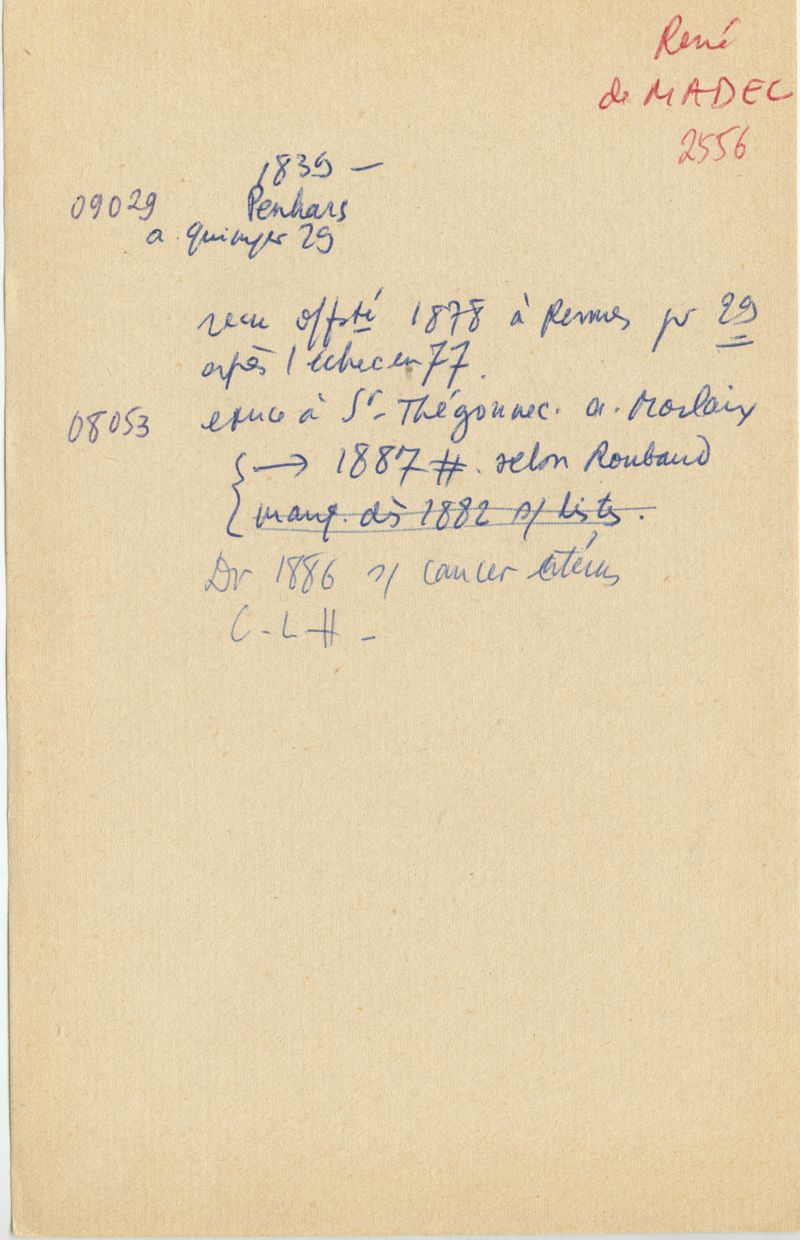 René
de MADEC
2556
1839 —
09029 Penhars
a. Quimper 29
recu offsté 1878 à Rennes pr 29
après l'échec en 77.
08053 exuce à St-Thégonnec. a. Morlaix
→ 1887 #. selon Roubaud
manq. dès 1882 s/ listes.
Dr 1886 s/ cancer utérus
C-L-H-